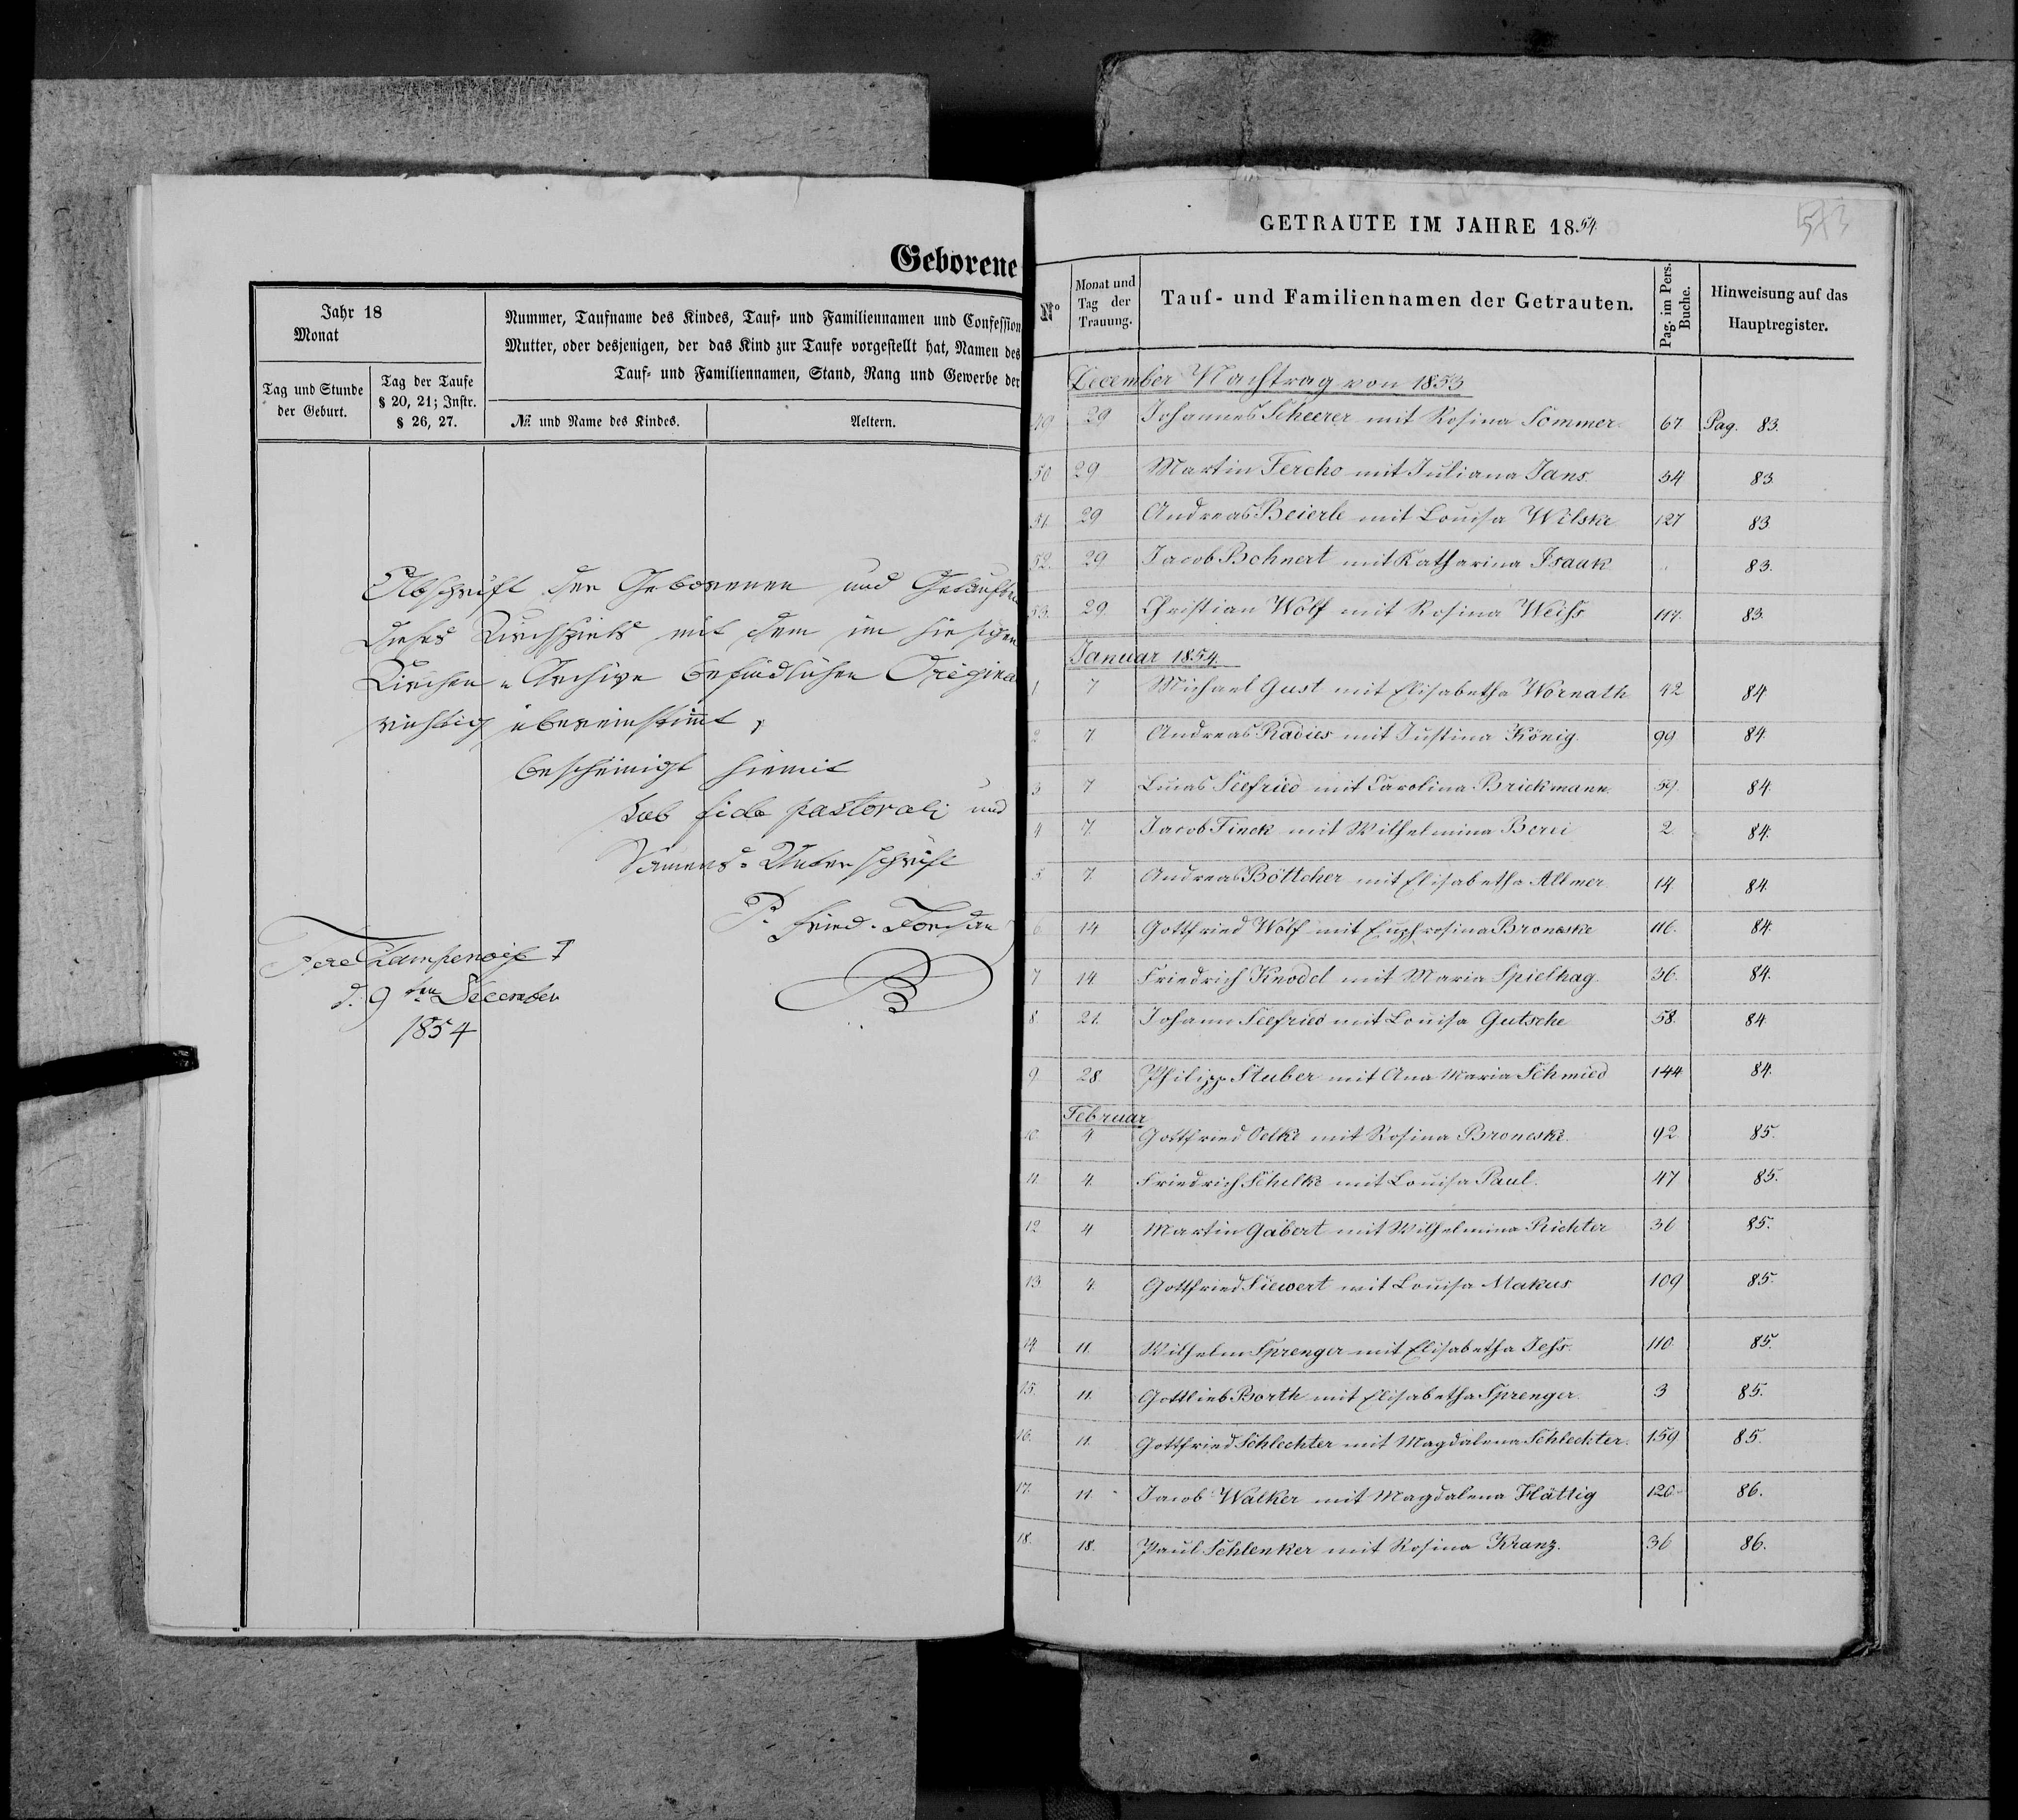 Geborene
Jahr 18
Monat
Nummer, Taufname des Kindes, Tauf- und Familiennamen und Confession
Mutter, oder desjenigen, der das Kind zur Taufe vorgestellt hat, Namen des
Tauf- und Familiennamen, Stand, Rang und Gewerbe der
Tag und Stunde der Geburt.
Tag der Taufe § 20, 21; Instr. § 26, 27.
№ und Name des Kindes.
Aeltern.
Abschrift der Geborenen und Getauften
dieses Kirchspiels mit dem im hiesigen
Kirchen-Archive befindlichen Origina
richtig übereinstimmt,
bescheinigt hiemit
sub fide pastorali und
Namens-Unterschrift
P. Fried.
Fere Champenoise I
d. 9ten December
1854
GETRAUTE IM JAHRE 1854
No
Monat und Tag der Trauung.
Tauf- und Familiennamen der Getrauten.
Pag. im Pers. Buche.
Hinweisung auf das Hauptregister.
December Nachtrag von 1853
49 29 Johannes Scheerer mit Rosina Sommer 67 Pag. 83.
50 29 Martin Fercho mit Juliana Jans. 34 83.
51. 29 Andreas Beierle mit Louisa Wilske 127 83
52. 29 Jacob Bohnert mit Katharina Isaak " 83.
53. 29 Christian Wolf mit Rosina Weiss 117. 83.
Januar 1854.
1 7 Michael Gust mit Elisabetha Wornath 42 84
2 7 Andreas Radies mit Justina König. 99 84.
3 7 Lucas Seefried mit Carolina Brickmann. 59. 84.
4 7. Jacob Finck mit Wilhelmina Berei 2. 84.
5. 7. Andreas Böttcher mit Elisabetha Allmer 14. 84.
6. 14 Gottfried Wolf mit Euphrosina Broneske 116. 84.
7 14. Friedrich Knodel mit Maria Spielhag. 36. 84.
8. 21. Johann Seefried mit Louisa Gutsche 58. 84.
9 28. Philipp Stuber mit Ana Maria Schmied 144 84.
Februar
10. 4 Gottfried Oelke mit Rosina Broneske. 92. 85.
11. 4. Friedrich Schelke mit Louisa Paul. 47 85.
12 4 Martin Gabert mit Wilhelmina Richter 36 85.
13. 4. Gottfried Siewert mit Louisa Makus 109 85.
14 11. Wilhelm Sprenger mit Elisabetha Jess. 110. 85.
15. 11. Gottlieb Borth mit Elisabetha Sprenger. 3 85.
16. 11. Gottfried Schlechter mit Magdalena Schlechter. 159 85.
17. 11 Jacob Walker mit Magdalena Hättig 120 86.
18. 18. Paul Schlenker mit Rosina Kranz. 36 86.